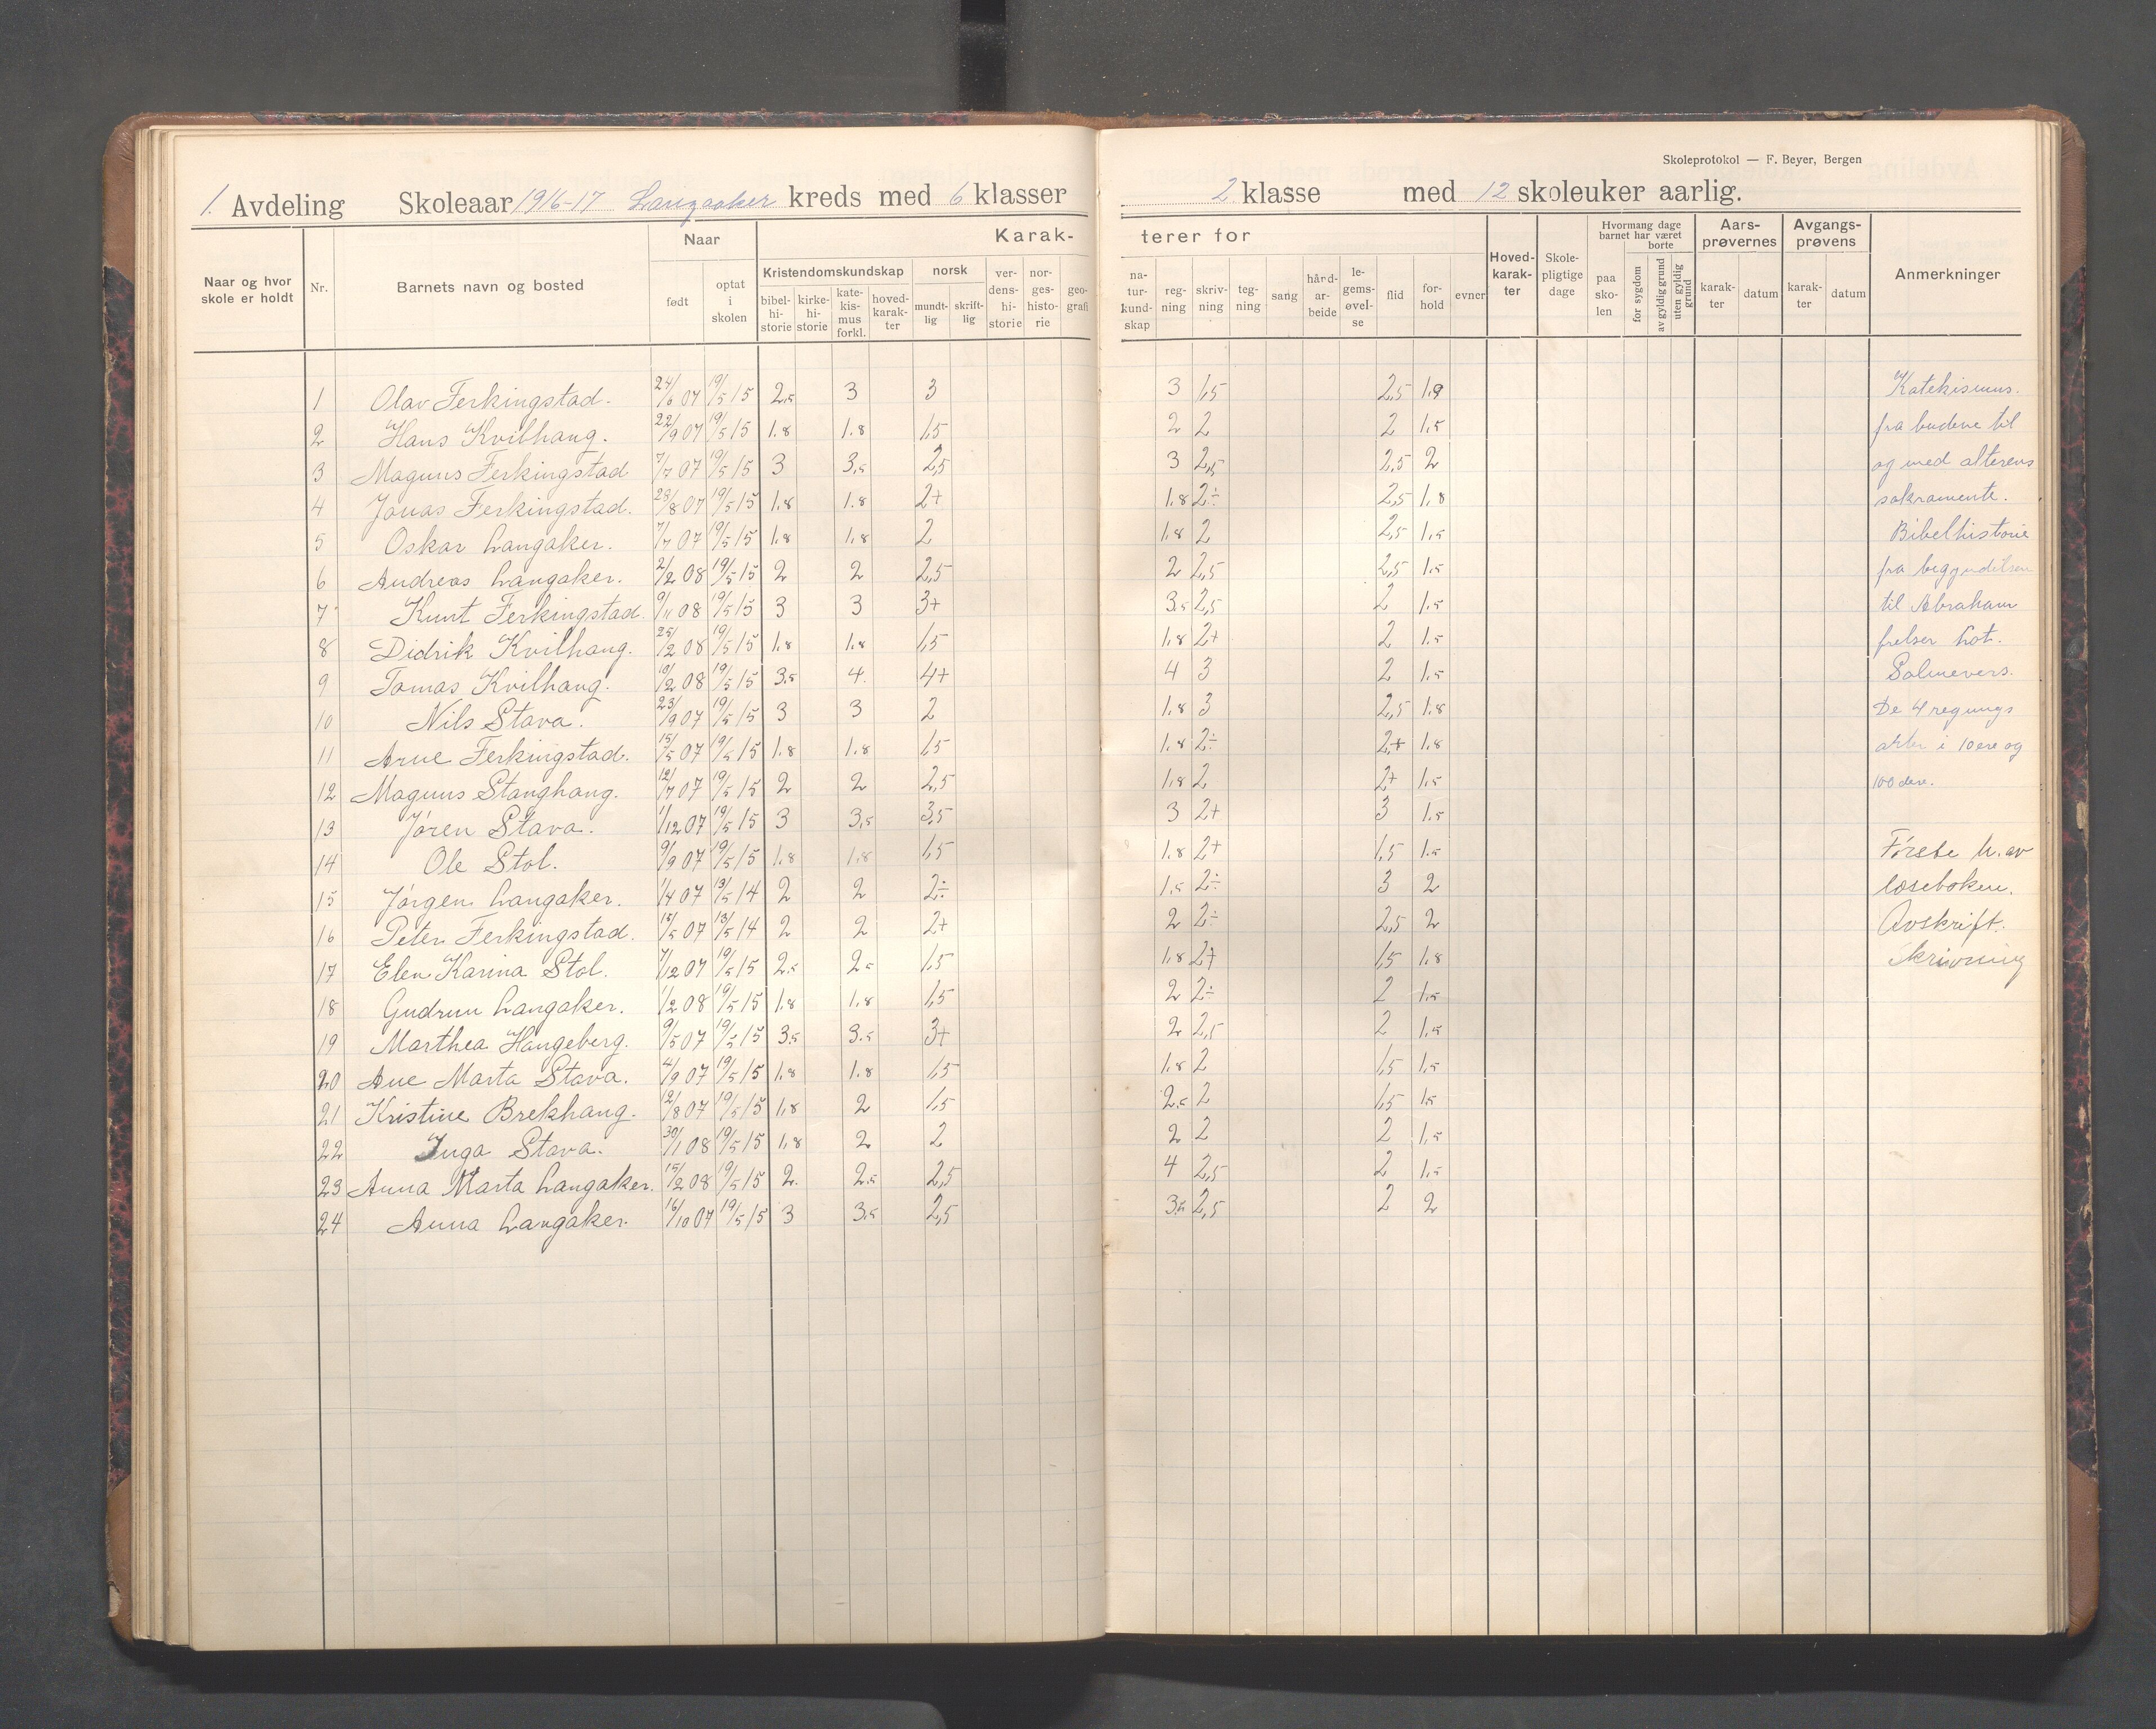 Skoleprotokol — F. Beyer, Bergen
1. Avdeling Skoleaar 1916-17 Langaaker kreds med 6 klasser 2 klasse med 12 skoleuker aarlig.
Naar og hvor skole er holdt Nr. Barnets navn og bosted Naar født optat i skolen Karakterer for Kristendomskundskap bibelhistorie kirkehistorie katekismus forkl. hovedkarakter norsk mundtlig skriftlig verdenshistorie norgeshistorie geografi naturkundskap regning skrivning tegning sang hårdarbeide legemsøvelse flid forhold evner Hovedkarakter Skolepligtige dage Hvormang dage barnet har været paa skolen borte for sygdom av gyldig grund uten gyldig grund Aarsprøvernes karakter datum Avgangsprøvens karakter datum Anmerkninger
1 Olav Ferkingstad. 24/6 07 19/5 15 2.5 3 3 3 1,5 2,5 1.9 Katekismus.
2 Hans Kvilhaug. 22/9 07 19/5 15 1.8 1.8 1,5 2 2 2 1.5 fra budene til
3 Magnus Ferkingstad 7/7 07 19/5 15 3 3.5 2,5 3 2,5 2,5 2 og med alterens
4 Jonas Ferkingstad. 28/8 07 19/5 15 1.8 1.8 2+ 1.8 2÷ 2,5 1.8 sakramente.
5 Oskar Langaker. 7/7 07 19/5 15 1.8 1.8 2 1.8 2 2,5 1.5 Bibelhistorie
6 Andreas Langaker. 2/2 08 19/5 15 2 2 2,5 2 2,5 2,5 1.5 fra begyndelsen
7 Knut Ferkingstad. 9/11 08 19/5 15 3 3 3+ 3.5 2,5 2 1.5 til Abraham
8 Didrik Kvilhaug. 25/2 08 19/5 15 1.8 1.8 1,5 1.8 2+ 2 1.5 frelser Lot.
9 Tomas Kvilhaug. 10/2 08 19/5 15 3.5 4. 4+ 4 3 2 1.5 Salmevers.
10 Nils Stava. 23/9 07 19/5 15 3 3 2 1.8 3 2,5 1.8 De 4 regnings
11 Arne Ferkingstad. 15/5 07 19/5 15 1.8 1.8 1,5 1.8 2÷ 2,+ 1.8 arter i 10ere og
12 Magnus Stanghaug. 12/7 07 19/5 15 2 2 2,5 1.8 2 2+ 1.5 100dere.
13 Jøren Stava. 1/12 07 19/5 15 3 3.5 3,5 3 2+ 3 1.5
14 Ole Stol. 9/9 07 19/5 15 1.8 1.8 1,5 1.8 2+ 1,5 1.5 Første h. av
15 Jørgen Langaker. 1/4 07 13/5 14 2 2 2÷ 1.5 2÷ 3 2 læseboken.
16 Peter Ferkingstad. 15/5 07 13/5 14 2 2 2+ 2 2÷ 2,5 2 Avskrift.
17 Elen Karina Stol. 7/12 07 19/5 15 2.5 2.5 1,5 1.8 2+ 1,5 1.8 Skrivning
18 Gudrun Langaker. 1/2 08 19/5 15 1.8 1.8 1,5 2 2÷ 2 1.5
19 Marthea Haugeberg. 9/5 07 19/5 15 3.5 3.5 3+ 2 2,5 2 1.5
20 Ane Marta Stava. 4/9 07 19/5 15 1.8 1.8 1,5 1.8 2 1,5 1.5
21 Kristine Brekhaug. 12/8 07 19/5 15 1.8 2 1,5 2.5 2 1,5 1.5
22 Inga Stava. 30/1 08 19/5 15 1.8 2 2 2 2 2 1.5
23 Anna Marta Langaker. 15/2 08 19/5 15 2. 2.5 2,5 4 2,5 2 1.5
24 Anna Langaker. 16/10 07 19/5 15 3 3.5 2,5 3.5 2,5 2 2